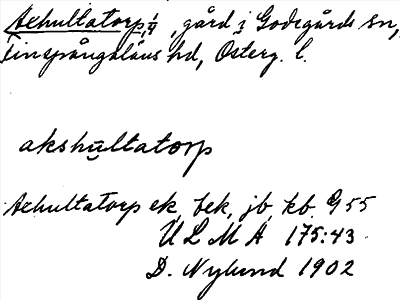 Axhultatorp, 1/4, gård i Godegårds sn,
Finspångaläns hd, Österg. l.
akshultatorp
Axhultatorp ek, bek, jb, kb. G 55
U L M A 175:43.
D. Nylund 1902